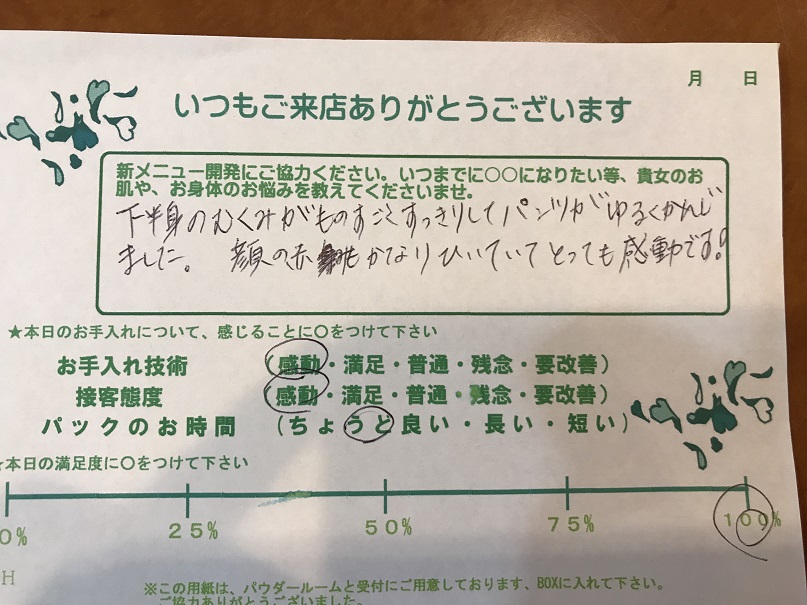 月 日
いつもご来店ありがとうございます
新メニュー開発にご協力ください。いつまでに○○になりたい等、貴女のお
肌や、お身体のお悩みを教えてくださいませ。
下半身のむくみがものすごくすっきりしてパンツがゆるくかんじ
ました。 顔の赤みもかなりひいていてとっても感動です!
★本日のお手入れについて、感じることに○をつけて下さい
お手入れ技術 (感動・満足・普通・残念・要改善)
接客態度 (感動・満足・普通・残念・要改善)
パックのお時間 (ちょうど良い・長い・短い)
★本日の満足度に○をつけて下さい
0% 25% 50% 75% 100%
H
※この用紙は、パウダールームと受付にご用意しております、BOXに入れて下さい。
ご協力ありがとうございました。